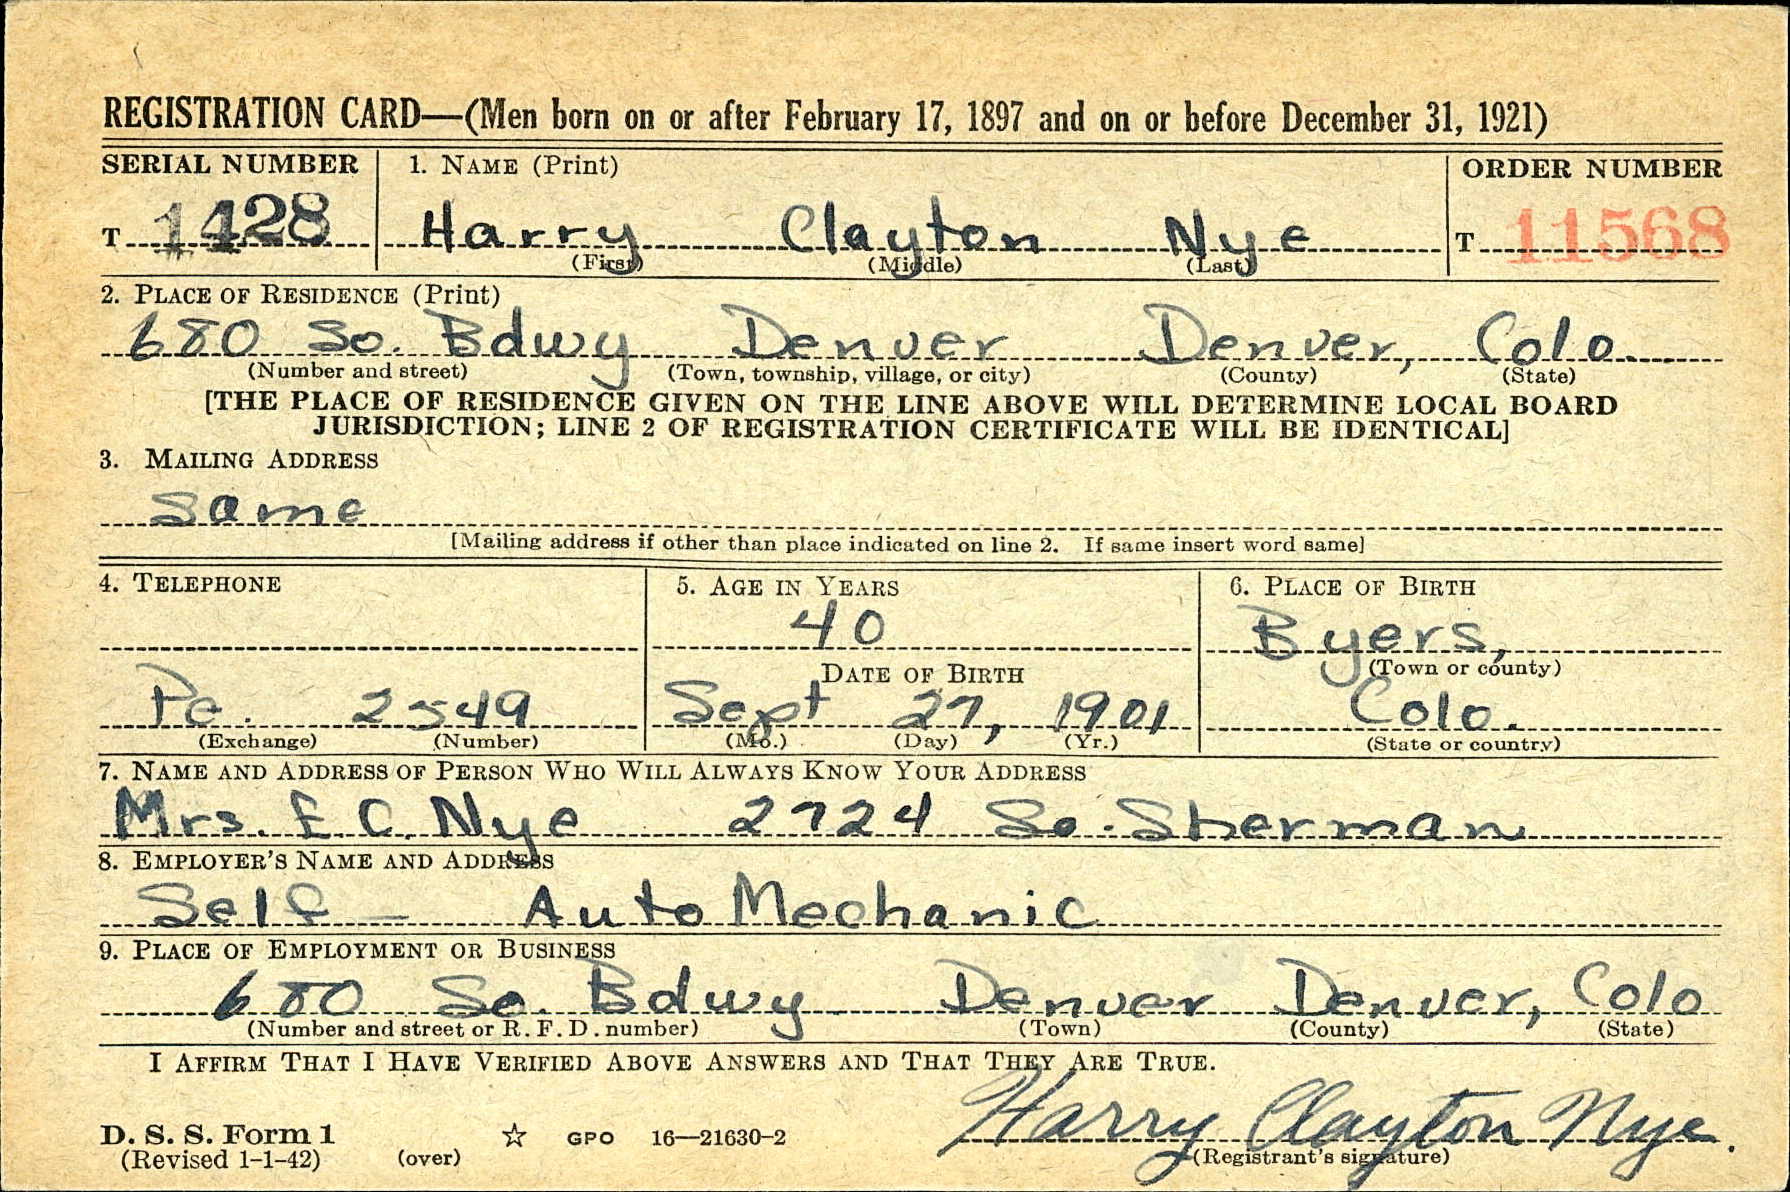 REGISTRATION CARD—(Men born on or after February 17, 1897 and on or before December 31, 1921)
SERIAL NUMBER 1. NAME (Print) ORDER NUMBER
T 1428 Harry Clayton Nye T 11568
(First) (Middle) (Last)
2. PLACE OF RESIDENCE (Print)
680 So. Bdwy Denver Denver, Colo.
(Number and street) (Town, township, village, or city) (County) (State)
[THE PLACE OF RESIDENCE GIVEN ON THE LINE ABOVE WILL DETERMINE LOCAL BOARD
JURISDICTION; LINE 2 OF REGISTRATION CERTIFICATE WILL BE IDENTICAL]
3. MAILING ADDRESS
Same
[Mailing address if other than place indicated on line 2. If same insert word same]
4. TELEPHONE 5. AGE IN YEARS 6. PLACE OF BIRTH
40 Byers,
DATE OF BIRTH (Town or county)
Pe. 2549 Sept 27, 1901 Colo.
(Exchange) (Number) (Mo.) (Day) (Yr.) (State or country)
7. NAME AND ADDRESS OF PERSON WHO WILL ALWAYS KNOW YOUR ADDRESS
Mrs. E. C. Nye 2724 So. Sherman
8. EMPLOYER'S NAME AND ADDRESS
Self — Auto Mechanic
9. PLACE OF EMPLOYMENT OR BUSINESS
680 So. Bdwy Denver Denver, Colo
(Number and street or R. F. D. number) (Town) (County) (State)
I AFFIRM THAT I HAVE VERIFIED ABOVE ANSWERS AND THAT THEY ARE TRUE.
Harry Clayton Nye.
D. S. S. Form 1 ☆ GPO 16—21630-2
(Revised 1-1-42) (over) (Registrant's signature)